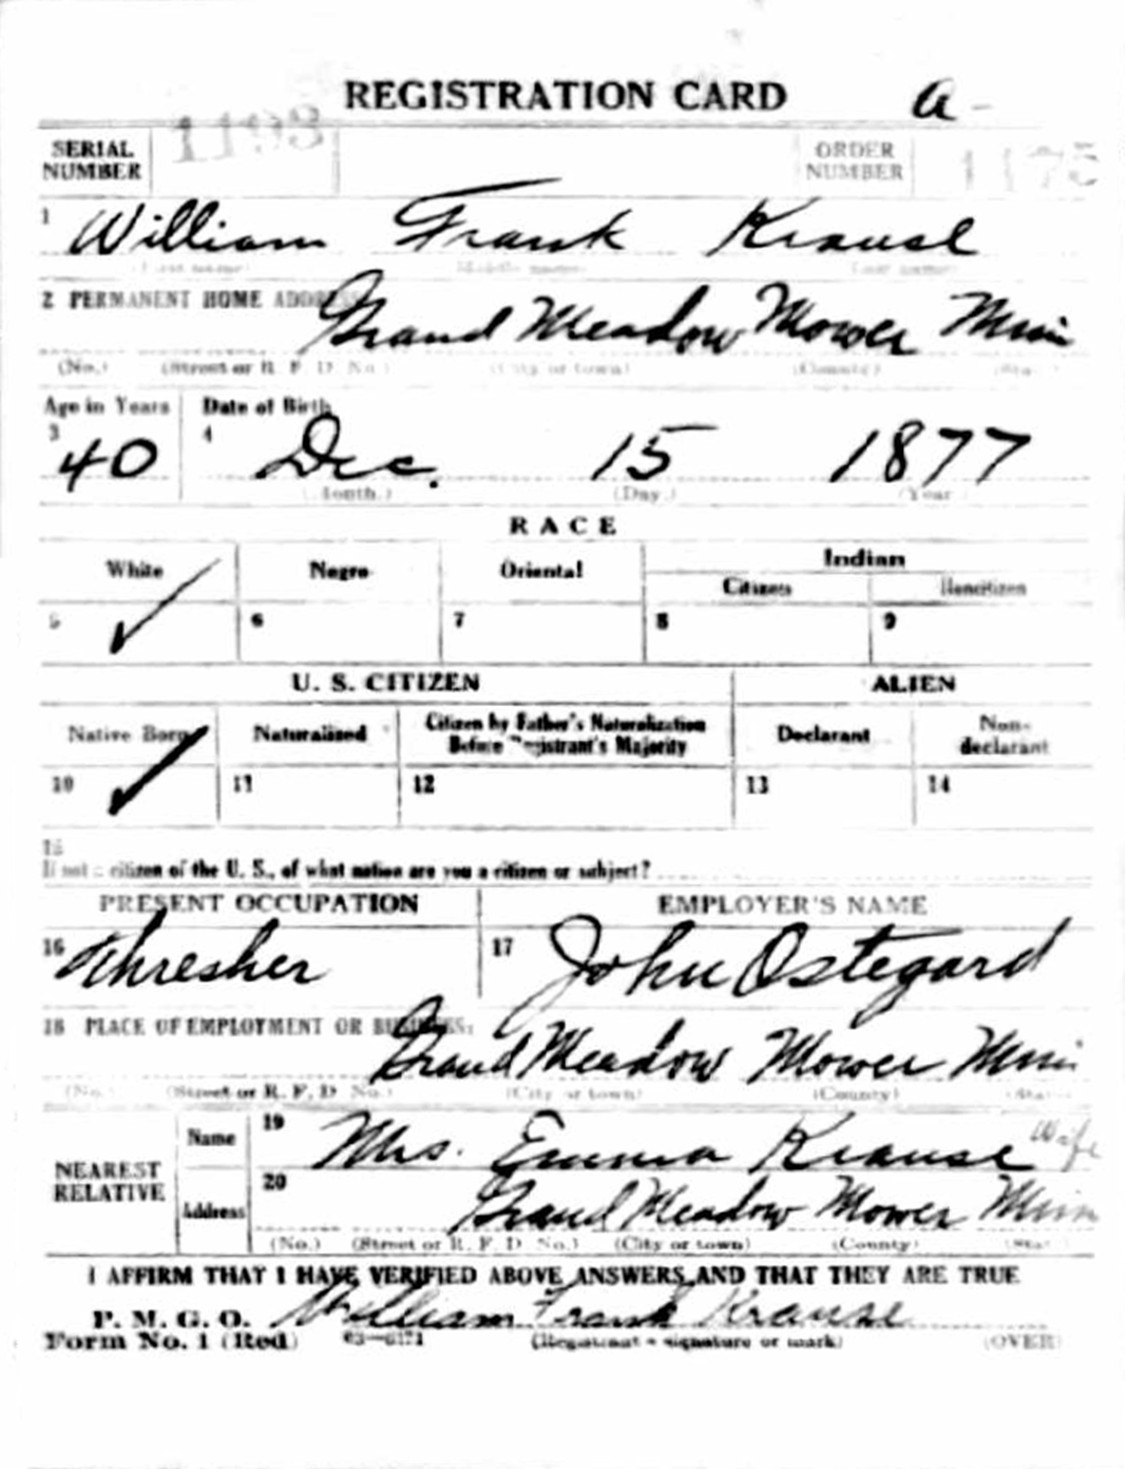 REGISTRATION CARD a-
SERIAL NUMBER 1193 ORDER NUMBER 1175
1 William Frank Krause
(First name) (Middle name) (Last name)
2 PERMANENT HOME ADDRESS:
Grand Meadow Mower Minn
(No.) (Street or R. F. D. No.) (City or town) (County) (State)
Age in Years Date of Birth
3 40 4 Dec. 15 1877
(Month.) (Day.) (Year.)
RACE
White Negro Oriental Indian
Citizen Noncitizen
5 ✓ 6 7 8 9
U. S. CITIZEN ALIEN
Native Born Naturalized Citizen by Father's Naturalization Before Registrant's Majority Declarant Non-declarant
10 ✓ 11 12 13 14
15
If not a citizen of the U. S., of what nation are you a citizen or subject?
PRESENT OCCUPATION EMPLOYER'S NAME
16 Thresher 17 John Ostegard
18 PLACE OF EMPLOYMENT OR BUSINESS:
Grand Meadow Mower Minn
(No.) (Street or R. F. D. No.) (City or town) (County) (State)
NEAREST RELATIVE
Name 19 Mrs. Emma Krause Wife
Address 20 Grand Meadow Mower Minn
(No.) (Street or R. F. D. No.) (City or town) (County) (State)
I AFFIRM THAT I HAVE VERIFIED ABOVE ANSWERS AND THAT THEY ARE TRUE
P. M. G. O. William Frank Krause
Form No. 1 (Red) 03—6171 (Registrant's signature or mark) (OVER)